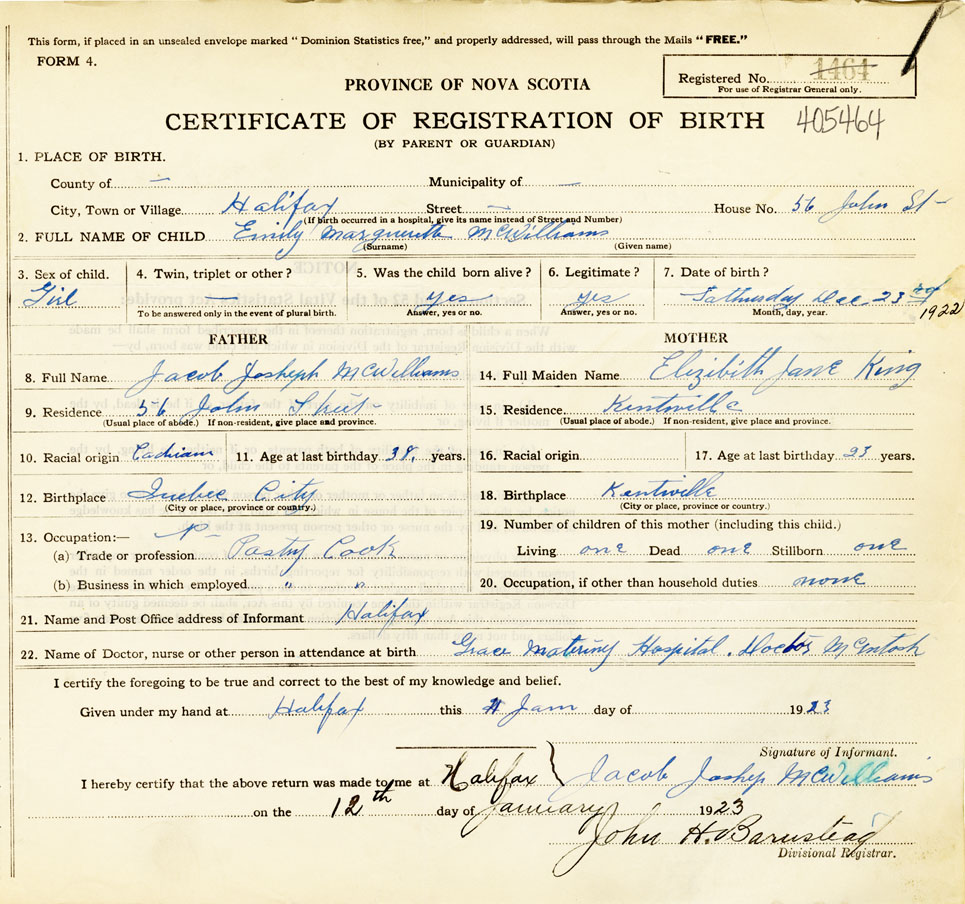 This form, if placed in an unsealed envelope marked "Dominion Statistics free," and properly addressed, will pass through the Mails "FREE."
FORM 4.
PROVINCE OF NOVA SCOTIA
Registered No. 1464
For use of Registrar General only.
CERTIFICATE OF REGISTRATION OF BIRTH 405464
(BY PARENT OR GUARDIAN)
1. PLACE OF BIRTH.
County of — Municipality of —
City, Town or Village Halifax Street — House No. 56 John St-
(If birth occurred in a hospital, give its name instead of Street and Number)
2. FULL NAME OF CHILD Emily Marguerith McWilliams
(Surname) (Given name)
3. Sex of child. 4. Twin, triplet or other? 5. Was the child born alive? 6. Legitimate? 7. Date of birth?
Girl — yes yes Sathusday Dec 23rd 1922
To be answered only in the event of plural birth. Answer, yes or no. Answer, yes or no. Month, day, year.
FATHER MOTHER
8. Full Name Jacob Josheph McWilliams 14. Full Maiden Name Elizibith Jane King
9. Residence 56 John Street 15. Residence Kentville
(Usual place of abode.) If non-resident, give place and province. (Usual place of abode.) If non-resident, give place and province.
10. Racial origin 11. Age at last birthday 38, years. 16. Racial origin 17. Age at last birthday 23 years.
12. Birthplace Quebec City 18. Birthplace Kentville
(City or place, province or country.) (City or place, province or country.)
13. Occupation:— 19. Number of children of this mother (including this child.)
(a) Trade or profession Pastry Cook Living one Dead one Stillborn one
(b) Business in which employed " " 20. Occupation, if other than household duties none
21. Name and Post Office address of Informant Halifax
22. Name of Doctor, nurse or other person in attendance at birth Grace Materiny Hospital. Doctor McIntosh
I certify the foregoing to be true and correct to the best of my knowledge and belief.
Given under my hand at Halifax this Jam day of 1923
Signature of Informant.
I hereby certify that the above return was made to me at Halifax Jacob Joshep McWilliams
on the 12th day of January 1923
John H. Barnstead
Divisional Registrar.